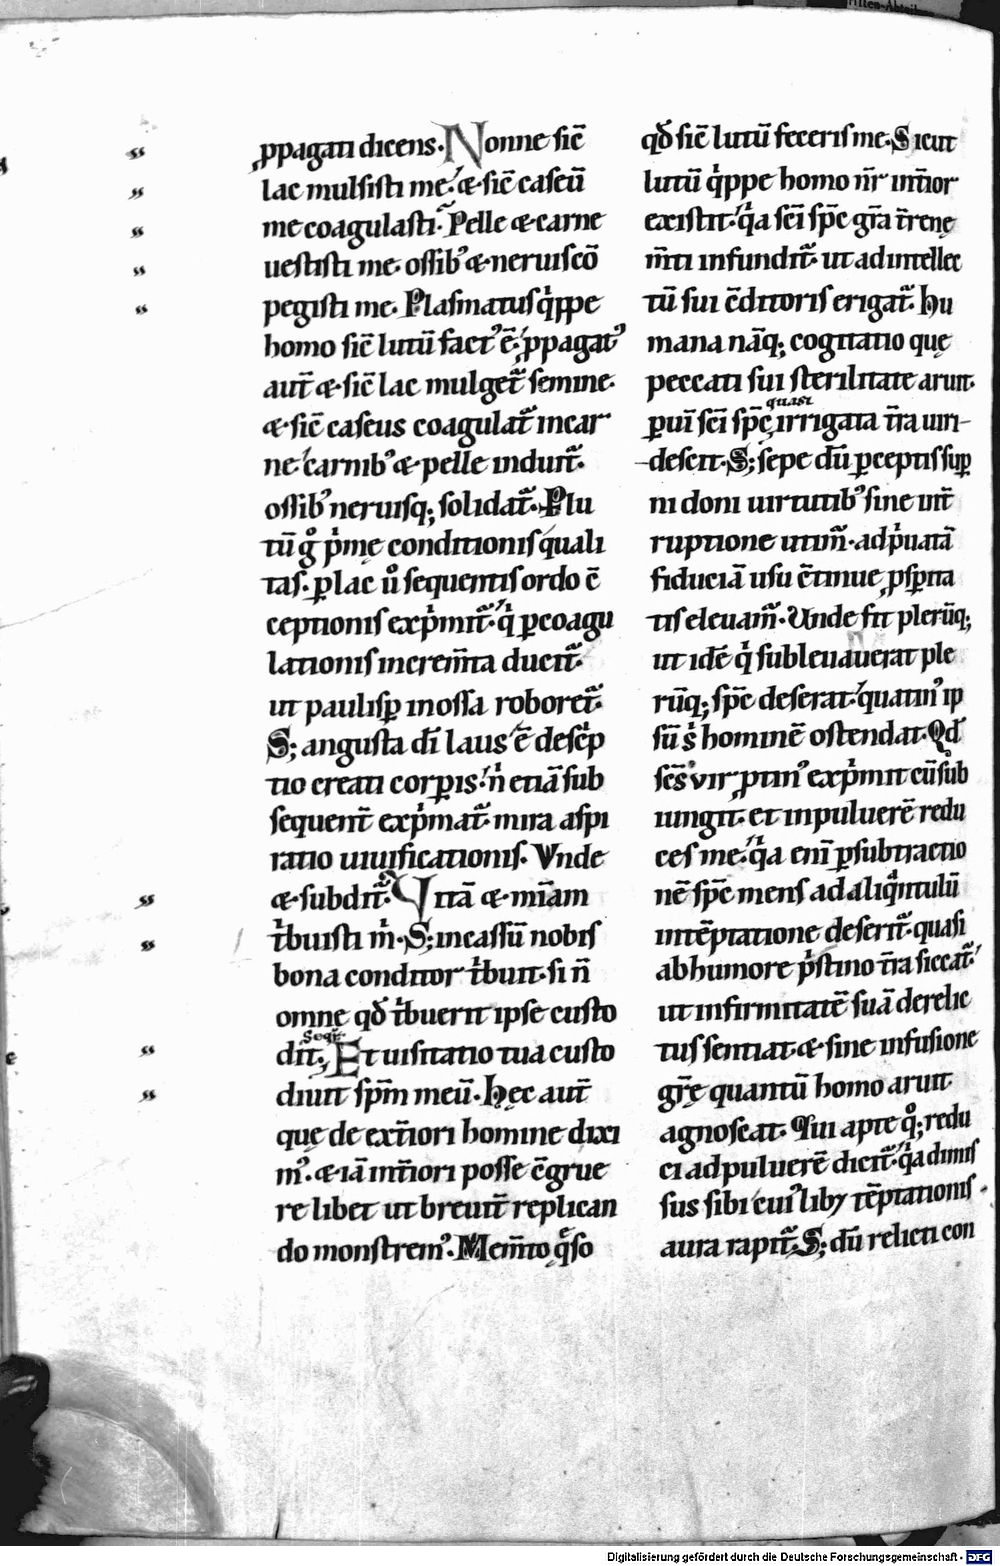 ꝓpagati dicens. Nonne sic̄
lac mulsisti me. & sic̄ caseū
me coagulasti. Pelle & carne
uestisti me. ossib' & neruis cō
pegisti me. Plasmatus q̍ppe
homo sic̄ lutū fact' ē. ꝓpagat'
aut̄ & sic̄ lac mulget̄ semine.
& sic̄ caseus coagulat̄ in car
ne. carnib' & pelle induit̄.
ossib' neruisq; solidat̄. P lu
tū g̊ p̍mę conditionis quali
tas. ꝑ lac ů sequentis ordo c̄
ceptionis exp̍mit̄. q̍ ꝑ coagu
lationis increm̄ta ducit̄.
ut paulisꝑ in ossa roboret̄.
S; angusta dī laus ē desc̍p
tio creati corꝑis. n̄ etiā sub
sequent̄ exp̍mat̄ mira aspi
ratio uiuificationis. Vnde
& subdit̄. Vitā & mīam
t̍buisti m̍. S; incassū nobis
bona conditor t̍buit. si n̄
omne qđ t̍buerit ipse custo
dit. Seqt̄. Et uisitatio tua custo
diuit spm̄ meū. Hęc aut̄
quę de ext̄iori homine dixi
m'. & iā int̄iori posse c̄grue
re libet ut breuit̄ replican
do monstrem'. Mem̄to q̄so
qđ sic̄ lutū feceris me. Sicut
lutū q̍ppe homo nr̄ int̄ior
existit. q̍a scī spc̄ gr̄a t̄renę
m̄ti infundit̄. ut ad intellec
tū sui c̄ditoris erigat̄. Hu
mana nāq; cogitatio quę
peccati sui sterilitate aruit.
ꝑ uī scī spc̄ quasi irrigata t̄ra uiri-
descit. S; sepe dū ꝑceptis suꝑ
ni doni uirtutib' sine int̄
ruptione utim̄. ad p̍uatā
fiduciā usu c̄tinuę ꝓsꝑita
tis eleuam̄. Vnde fit plerūq;
ut idē q̍ subleuauerat ple
rūq; spc̄ deserat. quatin' ip
sū s̍ hominē ostendat. Qđ
scs̄ vir ꝓtin' exp̍mit cū sub
iungit. et in puluerē redu
ces me. q̍a enī ꝑ subtractio
nē spc̄ mens ad aliq̄ntulū
in tēptatione deserit̄. quasi
ab humore p̍stino t̄ra siccat̄
ut infirmitatē suā derelic
tus sentiat. & sine infusione
gr̄ę quantū homo aruit
agnoscat. Qui apte q̊q; redu
ci ad puluerē dicit̄. q̍a dimis
sus sibi cui' lib; tēptationis
aura rapit̄. S; dū relicti con